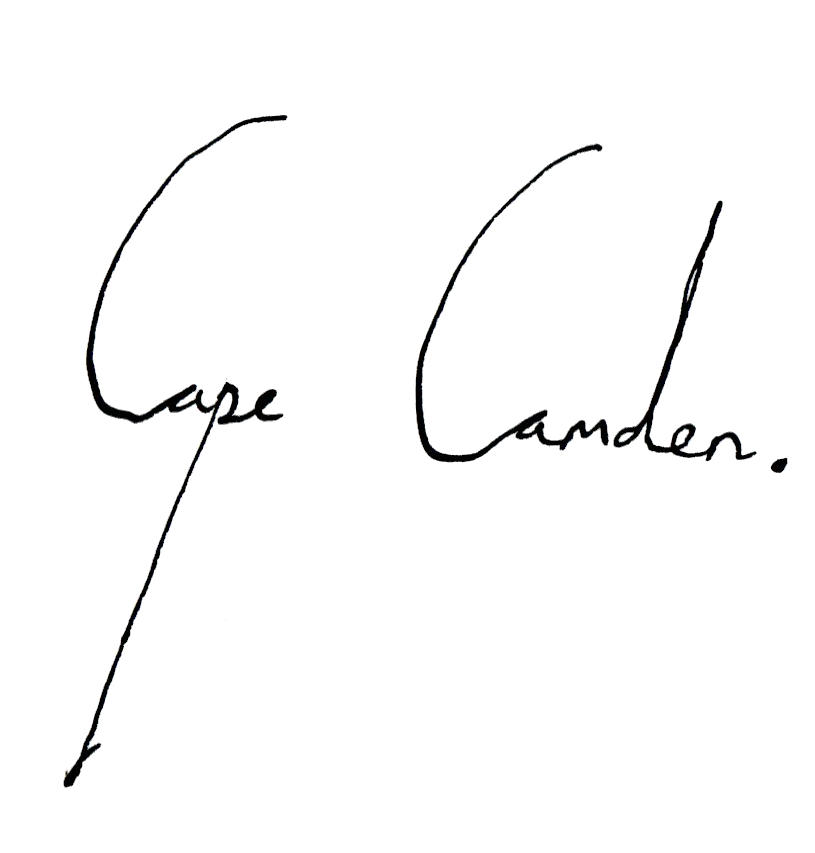 Cape Camden.